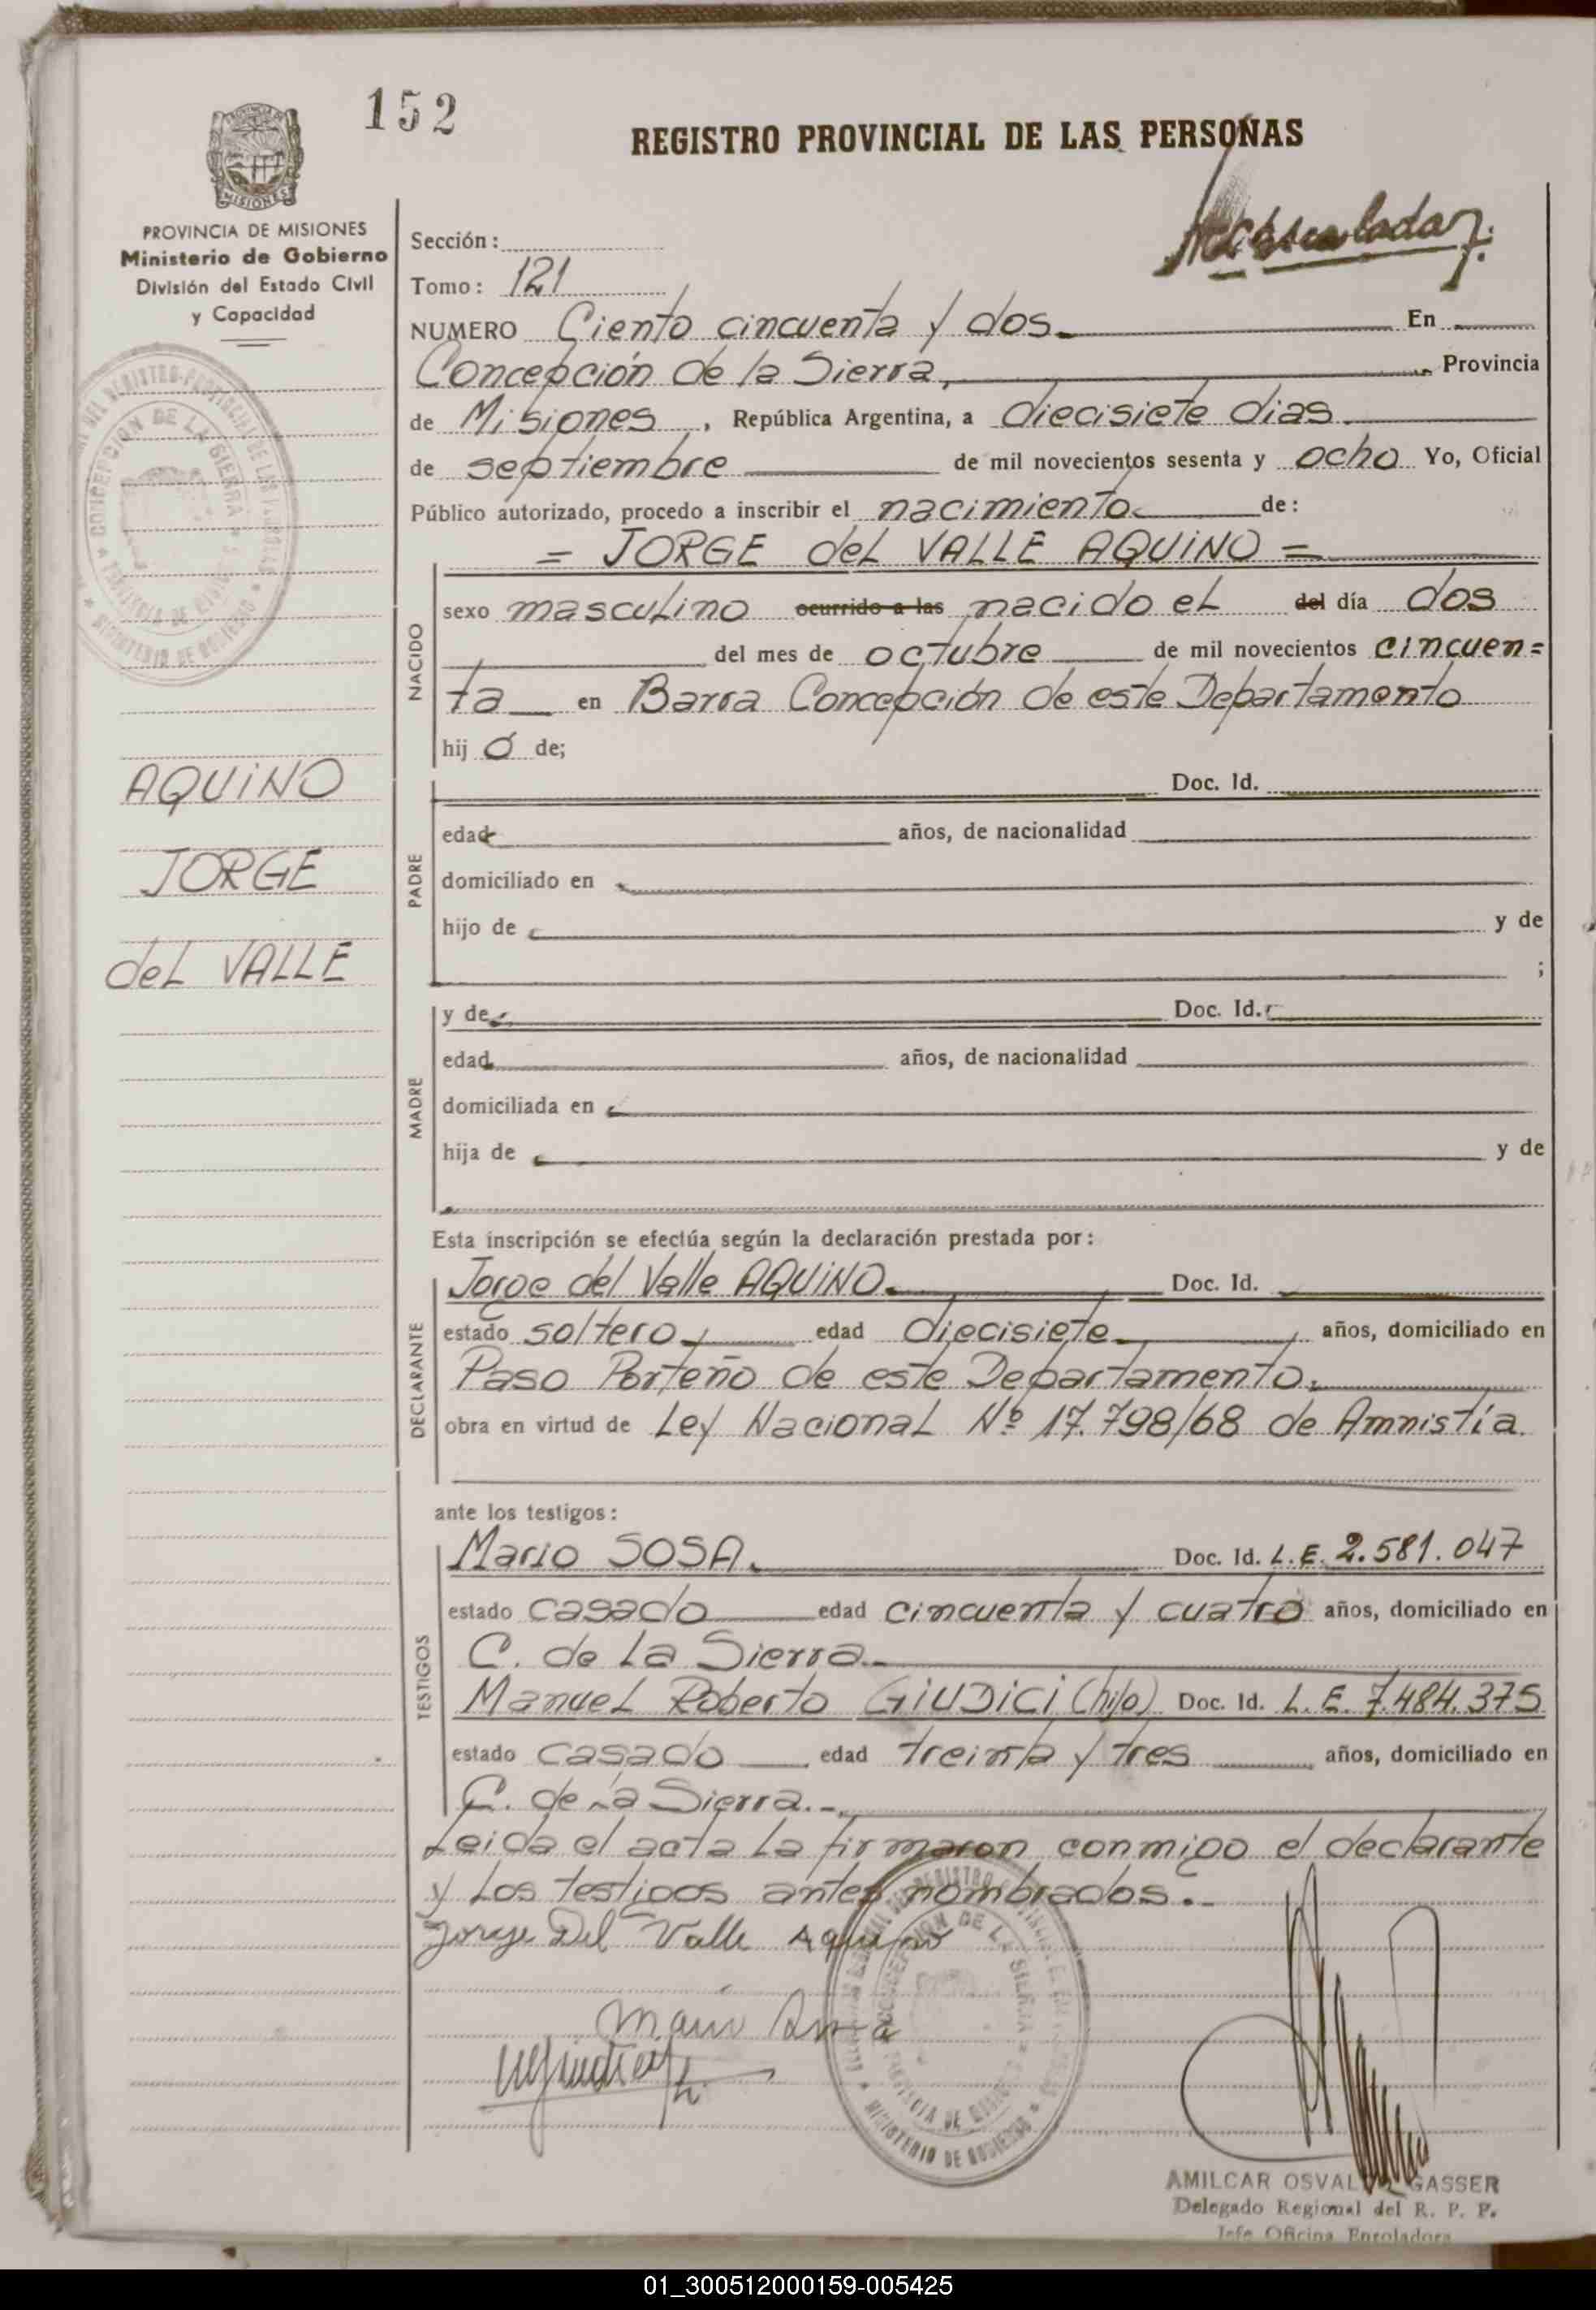 152
REGISTRO PROVINCIAL DE LAS PERSONAS
MISIONES
PROVINCIA DE MISIONES
Ministerio de Gobierno
División del Estado Civil
y Capacidad
Sección:
Tomo: 121
NUMERO Ciento cincuenta y dos. En
Concepción de la Sierra, Provincia
de Misiones, República Argentina, a diecisiete dias
de septiembre de mil novecientos sesenta y ocho Yo, Oficial
Público autorizado, procedo a inscribir el nacimiento de:
= JORGE del VALLE AQUINO =
NACIDO
sexo masculino ocurrido a las nacido el del día dos
del mes de octubre de mil novecientos cincuen=
ta en Barra Concepción de este Departamento
hij o de;
AQUINO
JORGE
del VALLE
PADRE
Doc. Id.
edad años, de nacionalidad
domiciliado en
hijo de y de
;
MADRE
y de Doc. Id.
edad años, de nacionalidad
domiciliada en
hija de y de
Esta inscripción se efectúa según la declaración prestada por:
DECLARANTE
Jorge del Valle AQUINO. Doc. Id.
estado soltero edad diecisiete años, domiciliado en
Paso Porteño de este Departamento.
obra en virtud de Ley Nacional Nº 17.798/68 de Amnistía.
ante los testigos:
TESTIGOS
Mario SOSA. Doc. Id. L.E. 2.581.047
estado casado edad cincuenta y cuatro años, domiciliado en
C. de La Sierra.-
Manuel Roberto GIUDICI (hijo) Doc. Id. L.E. 7.484.375
estado casado edad treinta y tres años, domiciliado en
C. de La Sierra.-
Leida el acta la firmaron conmigo el declarante
y los testigos antes nombrados.-
Jorge Del Valle Aquino
CONCEPCION DE LA SIERRA
MINISTERIO DE GOBIERNO
AMILCAR OSVALDO GASSER
Delegado Regional del R. P. P.
Jefe Oficina Enroladora
01_300512000159-005425